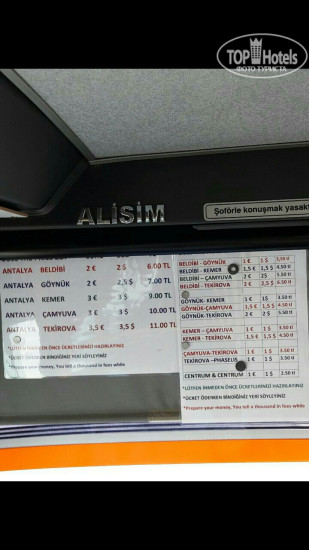 TOP Hotels
ФОТО ТУРИСТА
ALİSİM
Şoförle konuşmak yasakt
ANTALYA BELDİBİ 2 € 2 $ 6.00 TL
ANTALYA GÖYNÜK 2 € 2,5 $ 7.00 TL
ANTALYA KEMER 3 € 3 $ 9.00 TL
ANTALYA ÇAMYUVA 3 € 3 $ 10.00 TL
ANTALYA TEKİROVA 3,5 € 3,5 $ 11.00 TL
*LÜTFEN İNMEDEN ÖNCE ÜCRETLERİNİZİ HAZIRLATINIZ
*ÜCRET ÖDERKEN BİNDİĞİNİZ YERİ SÖYLEYİNİZ
*Prepare your money, You tell a thousand in fees while
BELDİBİ - GÖYNÜK 1 € 1 $
BELDİBİ - KEMER 1,5 € 1,5 $ 4.50 tl
BELDİBİ - ÇAMYUVA 2 € 2$
BELDİBİ - TEKİROVA 2 € 2,5 $ 6.50 tl
GÖYNÜK- KEMER 1 € 1$ 3.50 tl
GÖYNÜK-ÇAMYUVA 1,5 € 1,5 $ 4.50 tl
GÖYNÜK-TEKİROVA 2 € 2 $
KEMER – ÇAMYUVA 1 € 1 $ 3.50 tl
KEMER - TEKİROVA 1,5 € 1,5 $ 4.50 tl
ÇAMYUVA-TEKİROVA 1 € 1 $ 3.50 tl
TEKİROVA – PHASELİS 1 € 1 $ 3.50 tl
CENTRUM & CENTRUM 1 € 1 $ 2.50 tl
*LÜTFEN İNMEDEN ÖNCE ÜCRETLERİNİZİ HAZIRLATINIZ
*ÜCRET ÖDERKEN BİNDİĞİNİZ YERİ SÖYLEYİNİZ
*Prepare your money, You tell a thousand in fees while